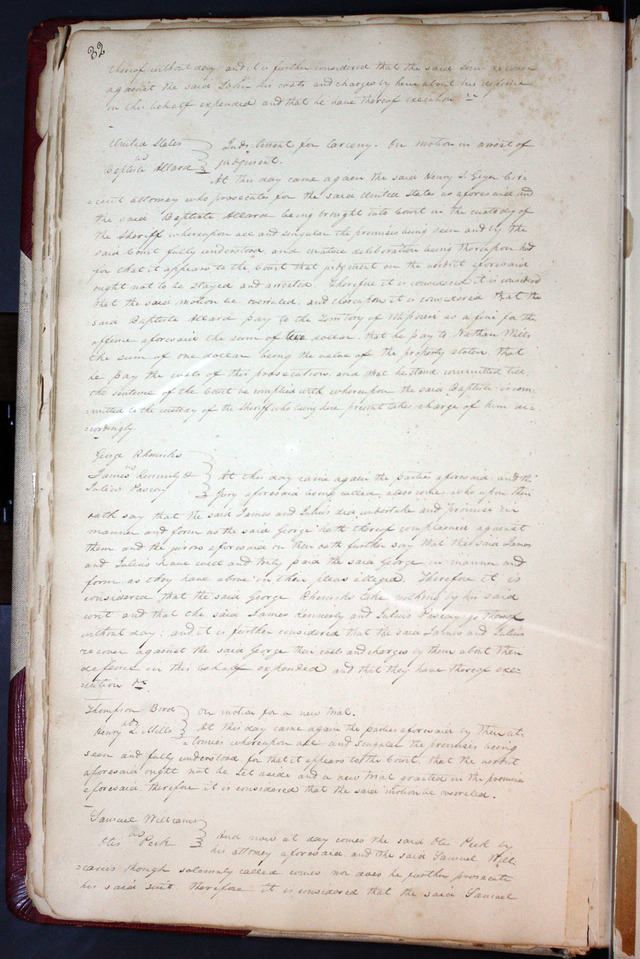 32
thereof without day and it is further considered that the said John recover
against the said John his costs and charges by him about his defence
in this behalf expended and that he have thereof execution &c
United States
vs
Baptiste Allard
Indictment for larceny. On motion in arrest of
judgment.
At this day came again the said Henry S. Geyer Cir-
cuit attorney who prosecutes for the said United States as aforesaid and
the said Baptiste Allard being brought into Court in the custody of
the Sheriff whereupon all and singular the premises being seen and by the
said Court fully understood and mature deliberation being thereupon had
for that it appears to the Court that judgement on the verdict aforesaid
ought not to be stayed and arrested. Therefore it is considered it is considered
that the said motion be overruled, and thereupon it is considered that the
said Baptiste Allard pay to the Territory of Missouri as a fine for the
offence aforesaid the sum of two dollar that he pay to Nathan Mills
the sum of one dollar being the value of the property stolen that
he pay the costs of this prosecution, and that he stand committed till
the sentence of the Court be complied with whereupon the said Baptiste is com-
mitted to the custody of the Sheriff who being here present takes charge of him ac-
cordingly.
George Rhenicks
vs
James Kennerly &
Julius Pescay
At this day came again the parties aforesaid, and the
Jury aforesaid being called, also come, who upon their
oath say that the said James and Julius did undertake and promise in
manner and form as the said George hath thereof complained against
them and the jurors aforesaid on their oath further say that the said James
and Julius have well and truly paid the said George in manner and
form as they have above in their pleas alleged. Therefore it is
considered that the said George Rhenicks take nothing by his said
writ and that the said James Kennerly and Julius Pescay go thereof
without day: and it is further considered that the said James and Julius
recover against the said George their costs and charges by them about their
defence in this behalf expended and that they have thereof exe-
cution &c
Thompson Bird
vs
Henry L. Mills
On motion for a new trial.
At this day came again the parties aforesaid by their at-
tornies whereupon all and singular the premises being
seen and fully understood for that it appears to the Court, that the verdict
aforesaid ought not be set aside and a new trial granted in the premises
aforesaid therefore it is considered that the said motion be overruled.
Samuel Williams
vs
Otis Peck
And now at day comes the said Otis Peck by
his attorney aforesaid and the said Samuel Will-
iams though solemnly called comes nor does he further prosecute
his said suit. Therefore it is considered that the said Samuel